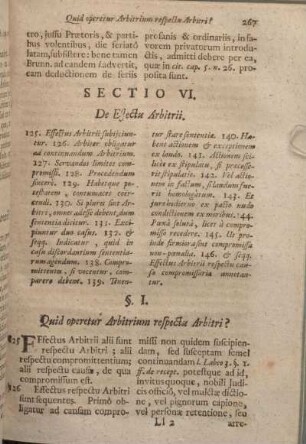 Quid operetur Arbitrium respectu Arbitri? 267
tro, jussu Prætoris, & partibus volentibus, die feriatô
Brunn. ad eandem l.
eam deductionem de feriis
profanis & ordinariis, in favorem privatorum introductis, admitti debere per ea,
quæ in cit. cap. 5. n. 26. proposita sunt.
SECTIO VI.
De Effectu Arbitrii.
125. Effectus Arbitrii subjiciuntur. 126. Arbiter obligatur
ad continuandum Arbitrium.
127. Servandi limites compromissi. 128. Procedendum
sincerè. 129.
130. Si plures sint Arbitri, omnes adesse debent, dum
sententia dicitur. 131. Excipiuntur duo casus. 132. &
seqq. Indicatur, quid in
casu discordantium sententiarum agendum. 138. Compromittentes, si vocentur, comparere debent. 139.
tur stare sententiæ. 140.
actionem & exceptionem
ex laudo. 141. Actionem scilicet ex stipulatu, si præcesserit stipulatio. 142. Vel actionem in factum, si laudum fuerit homologatum. 143. Et
jure hodierno ex pacto nudo
condictionem ex moribus. 144.
Pœnâ solutâ, licet à compromisso recedere. 145.
compromissa
non-pœnalia. 146. & seqq.
Effectus Arbitrii respectu causæ compromissariæ annotantur.
§. I.
Quid operetur Arbitrium respectu Arbitri?
125 Effectus Arbitrii alii sunt
respectu Arbitri; alii
respectu compromittentium;
alii respectu causæ, de qua
compromissum est.
126 Effectus respectu Arbitri
sunt sequentes. Primò obligatur ad causam compromissi non quidem suscipiendam, sed susceptam semel
continuandam l. Labeo 3. §. 1.
ff. de recept. potestque ad id,
invitusque, nobili Judicis officiô, vel mulctæ dictione, vel pignorum capione,
vel personæ retentione, seu
Ll 2 arre-